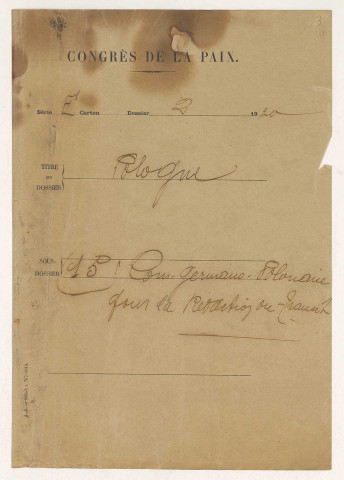 CONGRÈS DE LA PAIX.
Série E Carton Dossier 2 1920
TITRE DU DOSSIER Pologne
SOUS-DOSSIER 15 Com. germano-Polonaise
pour la Rédaction du Transit